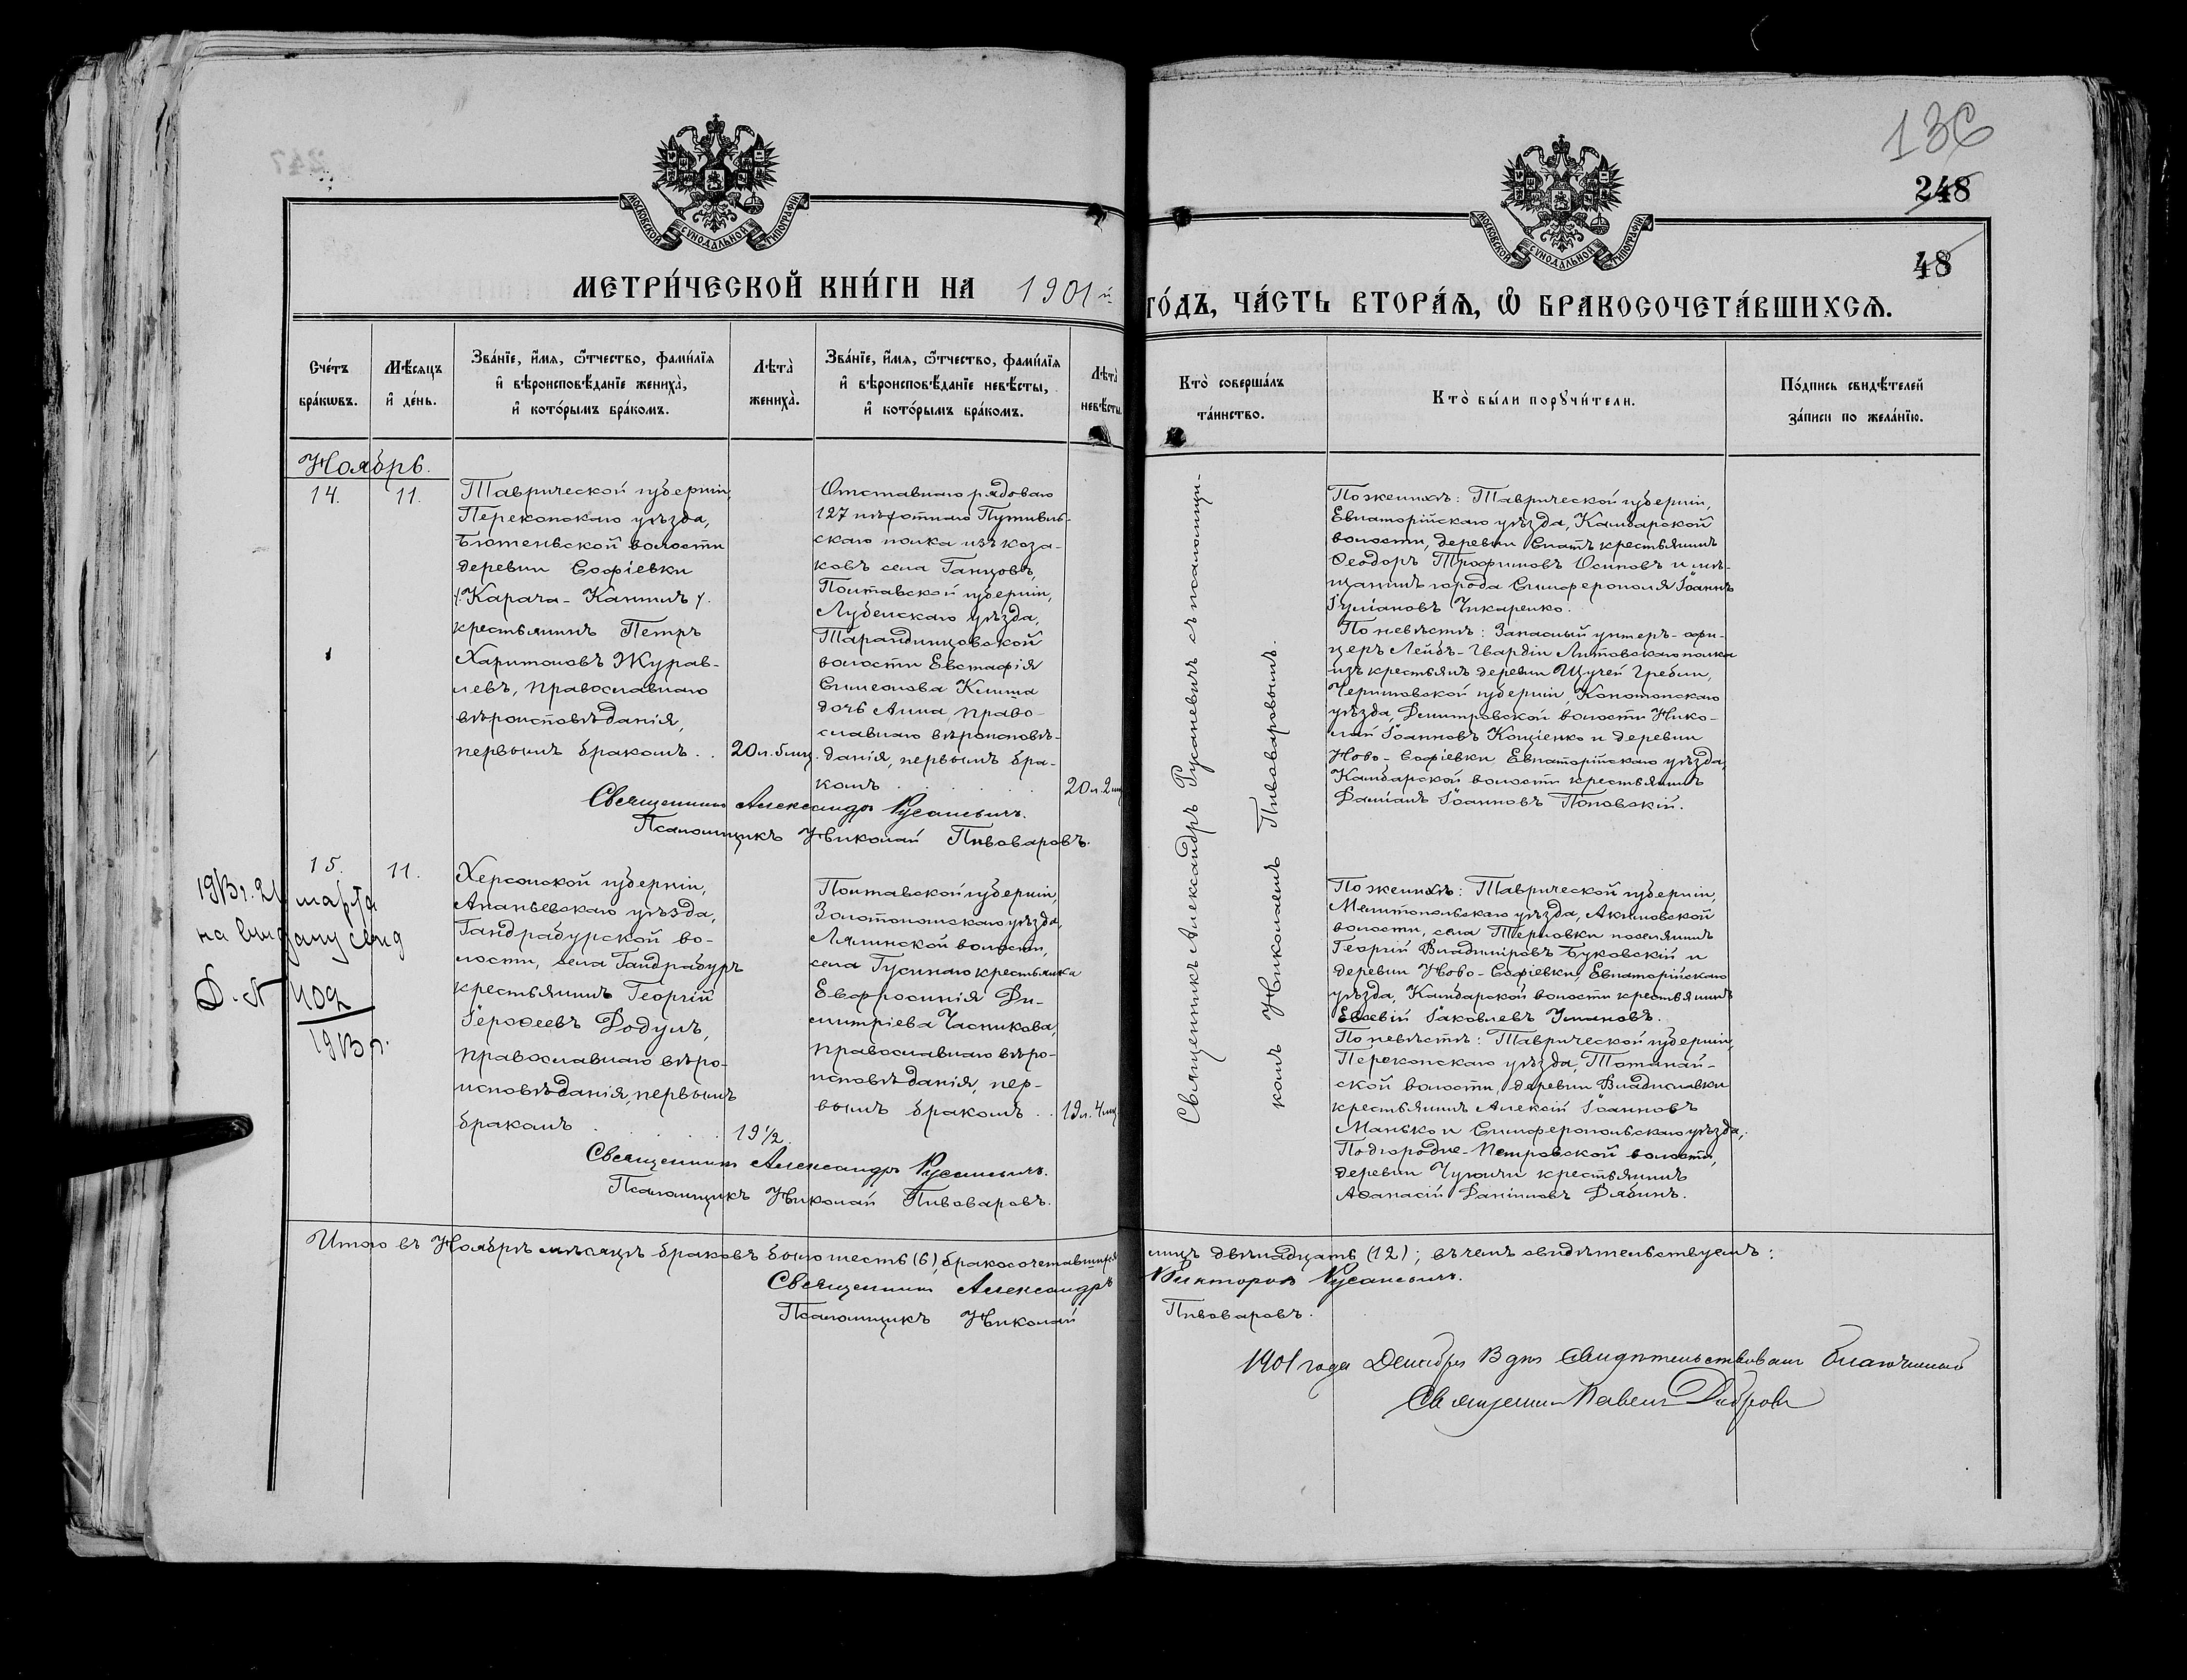 136
248
48
МОСКОВСКОЙ СѴНОДАЛЬНОЙ ТИПОГРАФІИ
МОСКОВСКОЙ СѴНОДАЛЬНОЙ ТИПОГРАФІИ
МЕТРИ́ЧЕСКОЙ КНИ́ГИ НА 1901 й
ГО́ДЪ, ЧА́СТЬ ВТОРА́Ѧ, Ѽ БРАКОСОЧЕТА́ВШИХСѦ.
Сче́тъ
бра́кѡвъ.
Мѣ́сяцъ
и҆ де́нь.
Зва́нїе, и҆́мѧ, ѻ҆́тчество, фами́лїѧ
и҆ вѣроисповѣ́данїе женихà,
и҆ кото́рымъ бра́комъ.
Лѣтà
женихà.
Зва́нїе, и҆́мѧ, ѻ҆́тчество, фами́лїѧ
и҆ вѣроисповѣ́данїе невѣ́сты,
и҆ кото́рымъ бра́комъ.
Лѣтà
невѣ́сты.
Кто̀ соверша́лъ
та́инство.
Кто̀ бы́ли порꙋчи́тели.
По́дпись свидѣ́телей
за́писи по жела́нїю.
Ноябрь.
14.
11.
Таврической губерніи,
Перекопскаго уѣзда,
Бютеньской волости
деревни Софіевки
/.Карача-Кангилъ/.
крестьянинъ Петръ
Харитоновъ Журав-
левъ, православнаго
вѣроисповѣданія,
первымъ бракомъ. .
20 л. 5 мц.
Отставнаго рядоваго
127 пѣхотнаго Путивль-
скаго полка изъ коза-
ковъ села Ганцовъ,
Полтавской губерніи,
Лубенскаго уѣзда,
Тарандинцовской
волости Евстафія
Симеонова Клита
дочь Анна, право-
славнаго вѣроисповѣ-
данія, первымъ бра-
комъ . . . .
20 л. 2 мц
Священникъ Александръ Русаневичъ.
Псаломщикъ Николай Пивоваровъ.
Священникъ Александръ Русаневичъ съ псаломщи-
комъ Николаемъ Пивоваровымъ.
По женихѣ: Таврической губерніи,
Евпаторійскаго уѣзда, Камбарской
волости, деревни Спатъ крестьянинъ
Ѳеодоръ Трофимовъ Осиповъ и мѣ-
щанинъ города Симферополя Іоаннъ
Іуліановъ Чикаренко.
По невѣстѣ: Запасный унтеръ-офи-
церъ Лейбъ-Гвардіи Литовскаго полка
изъ крестьянъ деревни Щучей Гребли,
Черниговской губерніи, Конотопскаго
уѣзда, Дмитровской волости Нико-
лай Іоанновъ Коціенко и деревни
Ново-Софіевки Евпаторійскаго уѣзда,
Камбарской волости крестьянинъ
Даміанъ Іоанновъ Поповскій.
15.
11.
1913 г. 21 марта
на выдану свид
Д. № 402
1913 г.
Херсонской губерніи,
Ананьевскаго уѣзда,
Гандрабурской во-
лости, села Гандрабуръ
крестьянинъ Георгій
Іероѳеевъ Додулъ,
православнаго вѣро-
исповѣданія, первымъ
бракомъ . . . .
19½.
Полтавской губерніи,
Золотоношскаго уѣзда,
Лялинской волости,
села Гусинаго крестьянка
Евфросинія Ди-
митріева Часникова,
православнаго вѣро-
исповѣданія, пер-
вымъ бракомъ. .
19 л. 4 мц
Священникъ Александръ Русаневичъ.
Псаломщикъ Николай Пивоваровъ.
По женихѣ: Таврической губерніи,
Мелитопольскаго уѣзда, Акимовской
волости, села Терновки поселянинъ
Георгій Владиміровъ Буковскій и
деревни Ново-Софіевки, Евпаторійскаго
уѣзда, Камбарской волости крестьянинъ
Евсевій Іаковлевъ Улановъ.
По невѣстѣ: Таврической губерніи,
Перекопскаго уѣзда, Тотанай-
ской волости, деревни Владиславки
крестьянинъ Алексій Іоанновъ
Манько и Симферопольскаго уѣзда,
Подгородне-Петровской волости,
деревни Чуюнчи крестьянинъ
Аѳанасій Даніиловъ Дябинъ.
Итого въ Ноябрѣ мѣсяцѣ браковъ было шесть (6), бракосочетавшихся
лицъ двѣнадцать (12); въ чемъ свидѣтельствуемъ:
Священникъ Александръ
Викторовъ Русаневичъ.
Псаломщикъ Николай
Пивоваровъ.
1901 года Декабря 13 дня Свидѣтельствовалъ благочинный
Священникъ Павелъ Добровъ